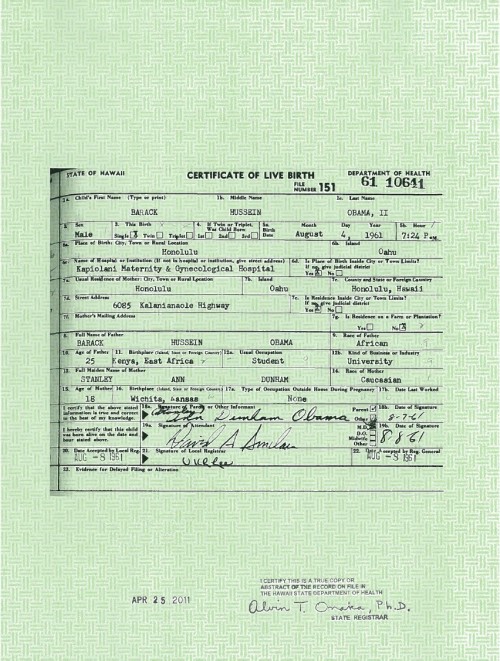 STATE OF HAWAII CERTIFICATE OF LIVE BIRTH DEPARTMENT OF HEALTH
FILE NUMBER 151 61 10641
1a. Child's First Name (Type or print) 1b. Middle Name 1c. Last Name
BARACK HUSSEIN OBAMA, II
2. Sex 3. This Birth 4. If Twin or Triplet, Was Child Born 5a. Birth Date Month Day Year 5b. Hour
Male Single X Twin Triplet 1st 2nd 3rd August 4, 1961 7:24 P.M.
6a. Place of Birth: City, Town or Rural Location 6b. Island
Honolulu Oahu
6c. Name of Hospital or Institution (If not in hospital or institution, give street address) 6d. Is Place of Birth Inside City or Town Limits? If no, give judicial district
Kapiolani Maternity & Gynecological Hospital Yes X No
7a. Usual Residence of Mother: City, Town or Rural Location 7b. Island 7c. County and State or Foreign Country
Honolulu Oahu Honolulu, Hawaii
7d. Street Address 7e. Is Residence Inside City or Town Limits? If no, give judicial district
6085 Kalanianaole Highway Yes X No
7f. Mother's Mailing Address 7g. Is Residence on a Farm or Plantation?
Yes No X
8. Full Name of Father 9. Race of Father
BARACK HUSSEIN OBAMA African
10. Age of Father 11. Birthplace (Island, State or Foreign Country) 12a. Usual Occupation 12b. Kind of Business or Industry
25 Kenya, East Africa Student University
13. Full Maiden Name of Mother 14. Race of Mother
STANLEY ANN DUNHAM Caucasian
15. Age of Mother 16. Birthplace (Island, State or Foreign Country) 17a. Type of Occupation Outside Home During Pregnancy 17b. Date Last Worked
18 Wichita, Kansas None
I certify that the above stated information is true and correct to the best of my knowledge. 18a. Signature of Parent or Other Informant Parent Other 18b. Date of Signature
Dunham Obama 8-7-61
I hereby certify that this child was born alive on the date and hour stated above. 19a. Signature of Attendant M.D. D.O. Midwife Other 19b. Date of Signature
David A Sinclair 8-8-61
20. Date Accepted by Local Reg. 21. Signature of Local Registrar 22. Date Accepted by Reg. General
AUG -8 1961 UKLee AUG -8 1961
23. Evidence for Delayed Filing or Alteration
APR 25 2011
I CERTIFY THIS IS A TRUE COPY OR
ABSTRACT OF THE RECORD ON FILE IN
THE HAWAII STATE DEPARTMENT OF HEALTH
Alvin T. Onaka, Ph.D.
STATE REGISTRAR